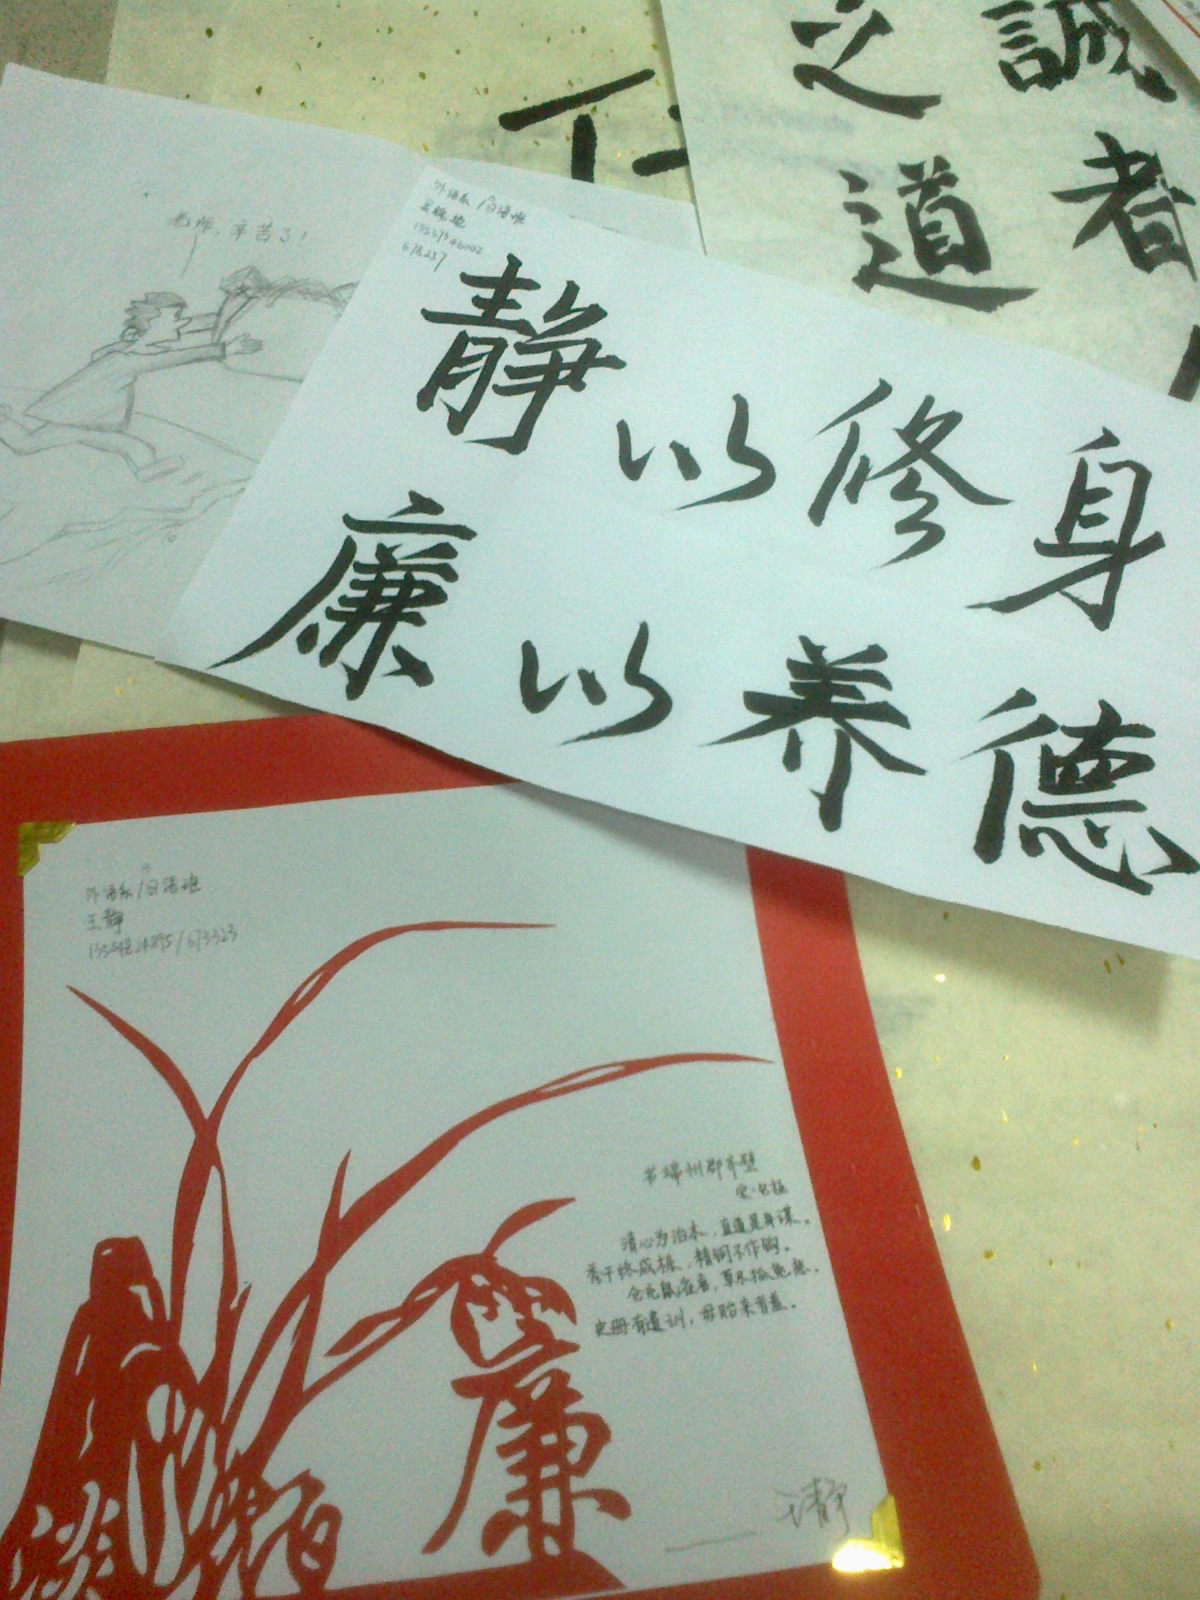 誠
者
之
道
老师，辛苦了！
外语系/日语班
静以修身
廉以养德
外语系/日语班
王静
书端州郡斋壁
宋·包拯
清心为治本，直道是身谋。
秀干终成栋，精钢不作钩。
仓充鼠雀喜，草尽狐兔愁。
史册有遗训，毋贻来者羞。
廉
王静